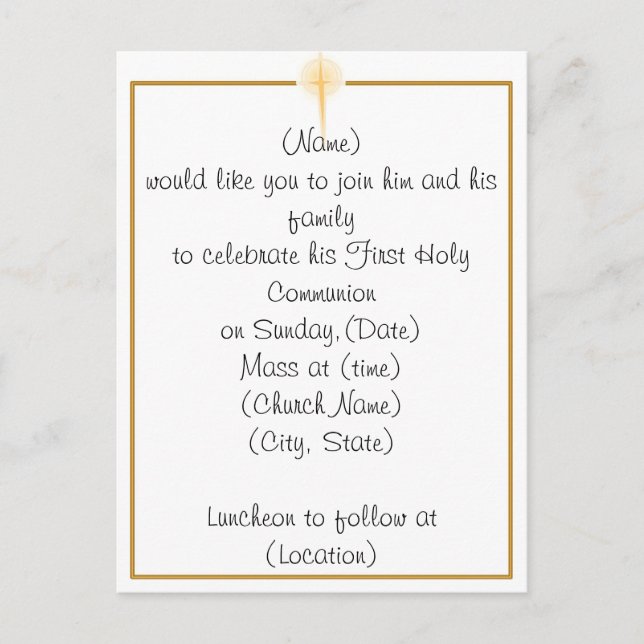 (Name)
would like you to join him and his
family
to celebrate his First Holy
Communion
on Sunday, (Date)
Mass at (time)
(Church Name)
(City, State)
Luncheon to follow at
(Location)